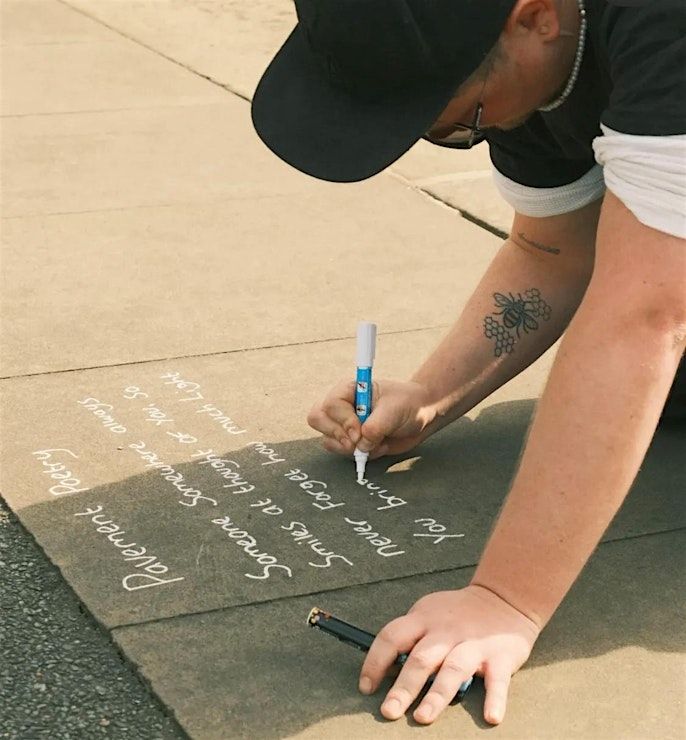 Pavement Poetry
Someone Somewhere always
Smiles at thought of You, So
never Forget how much Light
You brin